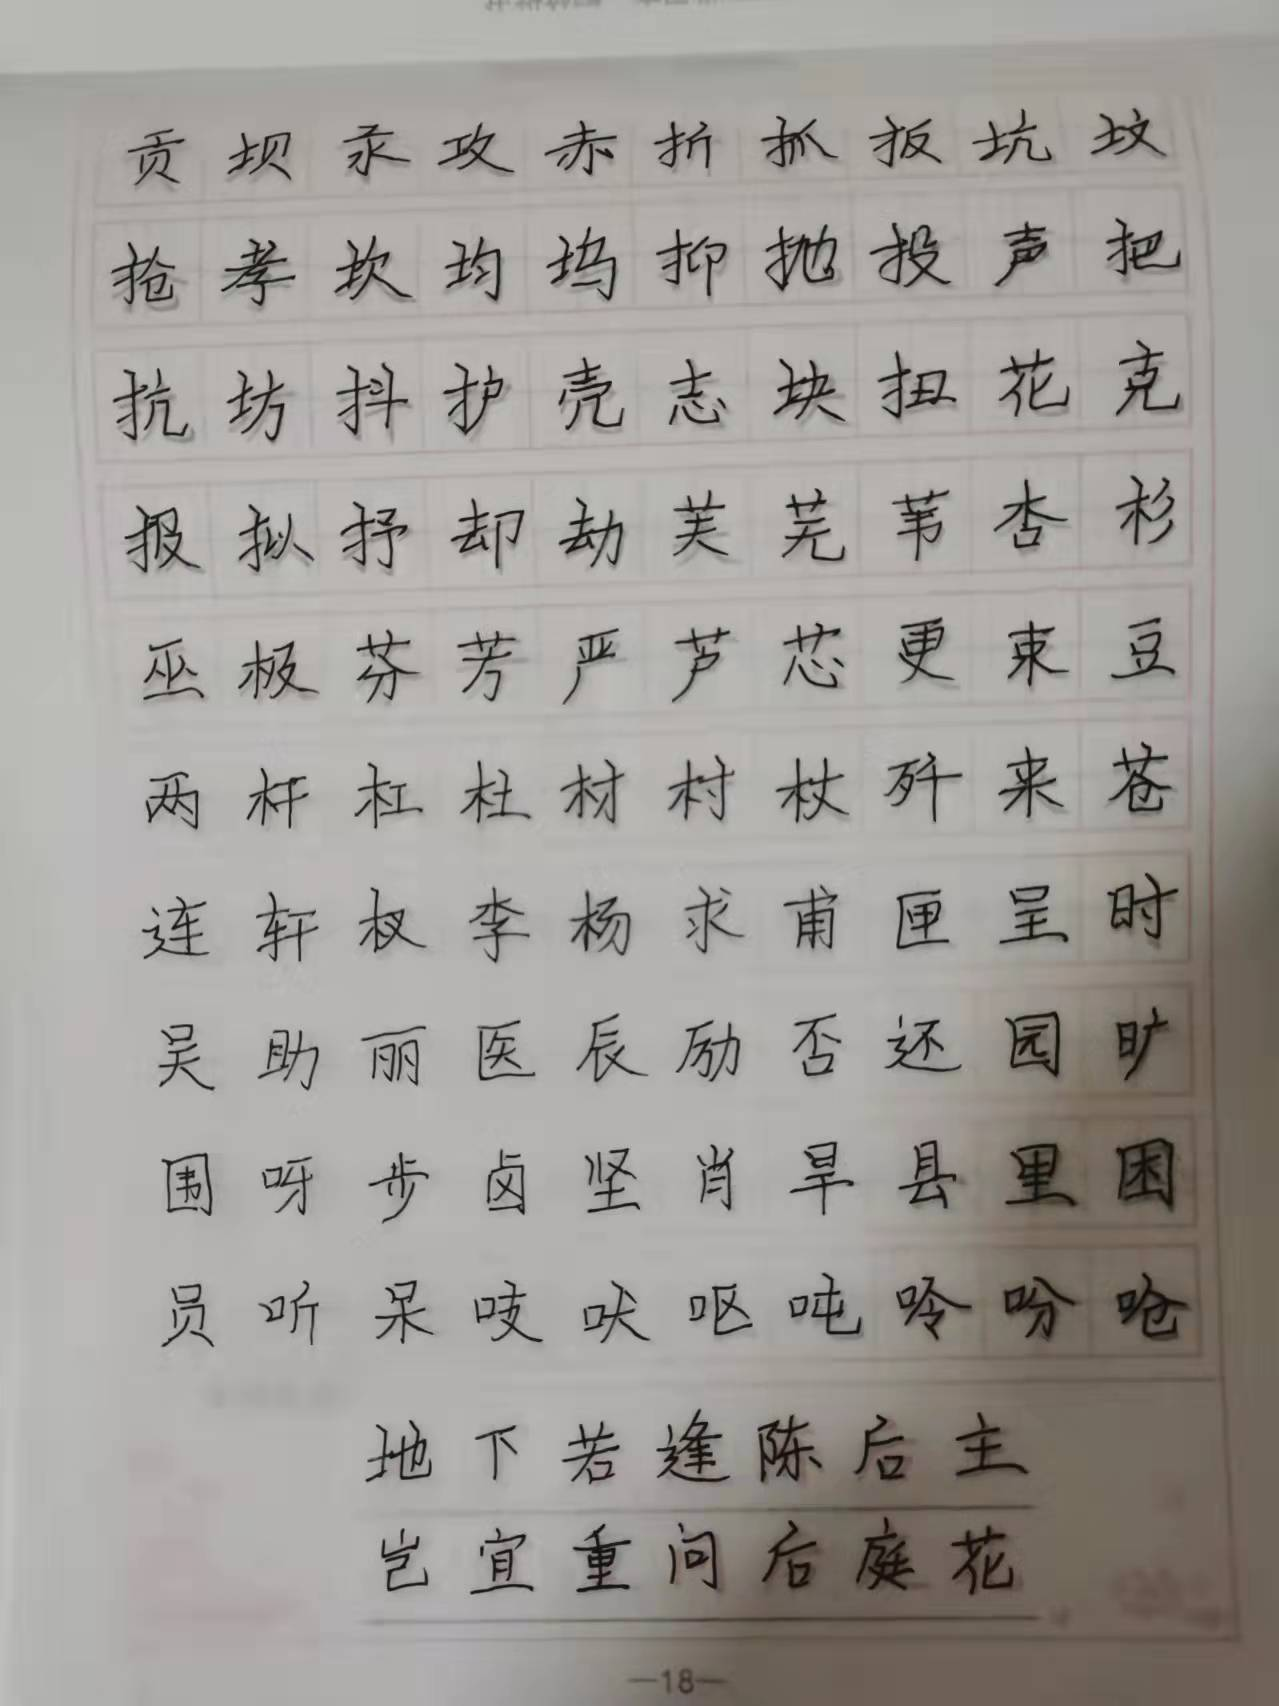 贡 坝 汞 攻 赤 折 抓 扳 坑 坟
抢 孝 坎 均 坞 抑 抛 投 声 把
抗 坊 抖 护 壳 志 块 扭 花 克
报 拟 抒 却 劫 芙 芜 苇 杏 杉
巫 极 芬 芳 严 芦 芯 更 束 豆
两 杆 杠 杜 材 村 杖 歼 来 苍
连 轩 杈 李 杨 求 甫 匣 呈 时
吴 助 丽 医 辰 励 否 还 园 旷
围 呀 步 卤 坚 肖 旱 县 里 困
员 听 呆 吱 吠 呕 吨 呤 吩 呛
地下若逢陈后主
岂宜重问后庭花
—18—